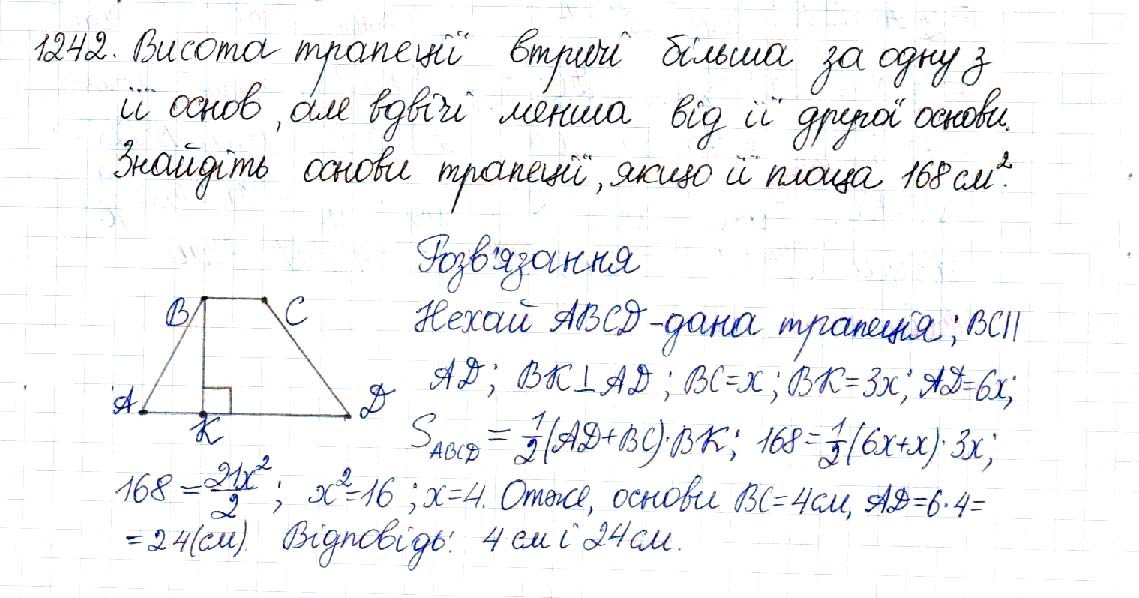 1242. Висота трапеції втричі більша за одну з
її основ, але вдвічі менша від її другої основи.
Знайдіть основи трапеції, якщо її площа 168 см².
Розв'язання
B C
Нехай ABCD - дана трапеція; BC||
AD; BK⊥AD; BC=x; BK=3x; AD=6x;
A K D
S_ABCD = 1/2(AD+BC)·BK; 168=1/2(6x+x)·3x;
168=21x²/2; x²=16; x=4. Отже, основи BC=4см, AD=6·4=
=24(см). Відповідь: 4 см і 24 см.